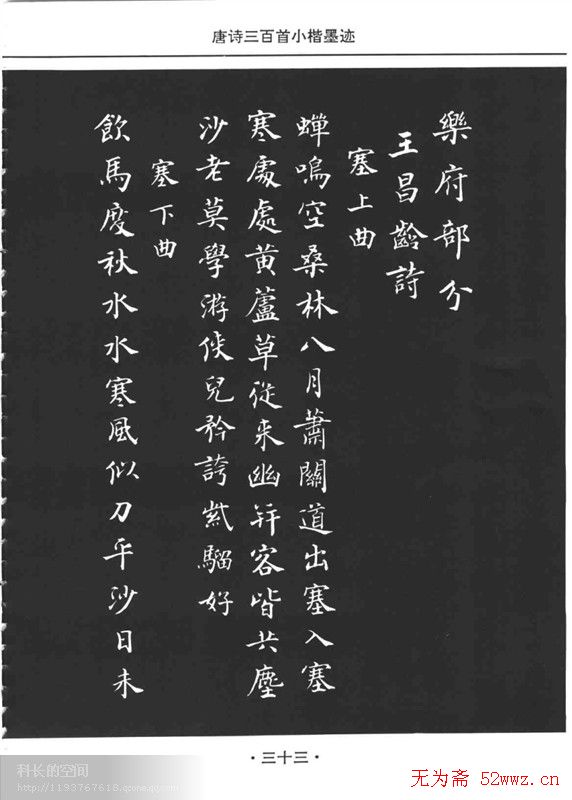 唐诗三百首小楷墨迹
樂府部分
王昌齡詩
塞上曲
蟬鳴空桑林八月蕭關道出塞入塞
寒處處黃蘆草從来幽并容皆共塵
沙老莫學游俠兒矜誇紫騮好
塞下曲
飲馬度秋水水寒風似刀平沙日未
·三十三·
科长的空间
http://1193767618.qzone.qq.com
无为斋 52wwz.cn